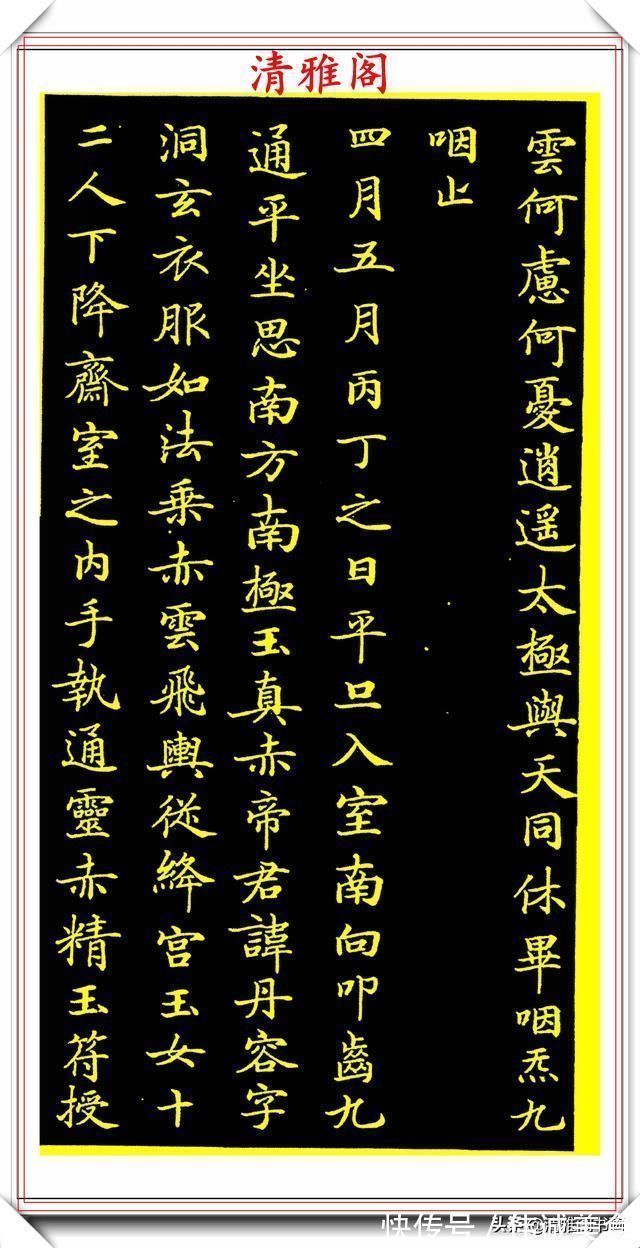 清雅阁
雲何慮何憂逍遥太極與天同休畢咽炁九
咽止
四月五月丙丁之日平旦入室南向叩齒九
通平坐思南方南極玉真赤帝君諱丹容字
洞玄衣服如法乗赤雲飛輿従絳宫玉女十
二人下降齋室之内手執通靈赤精玉符授
快传号